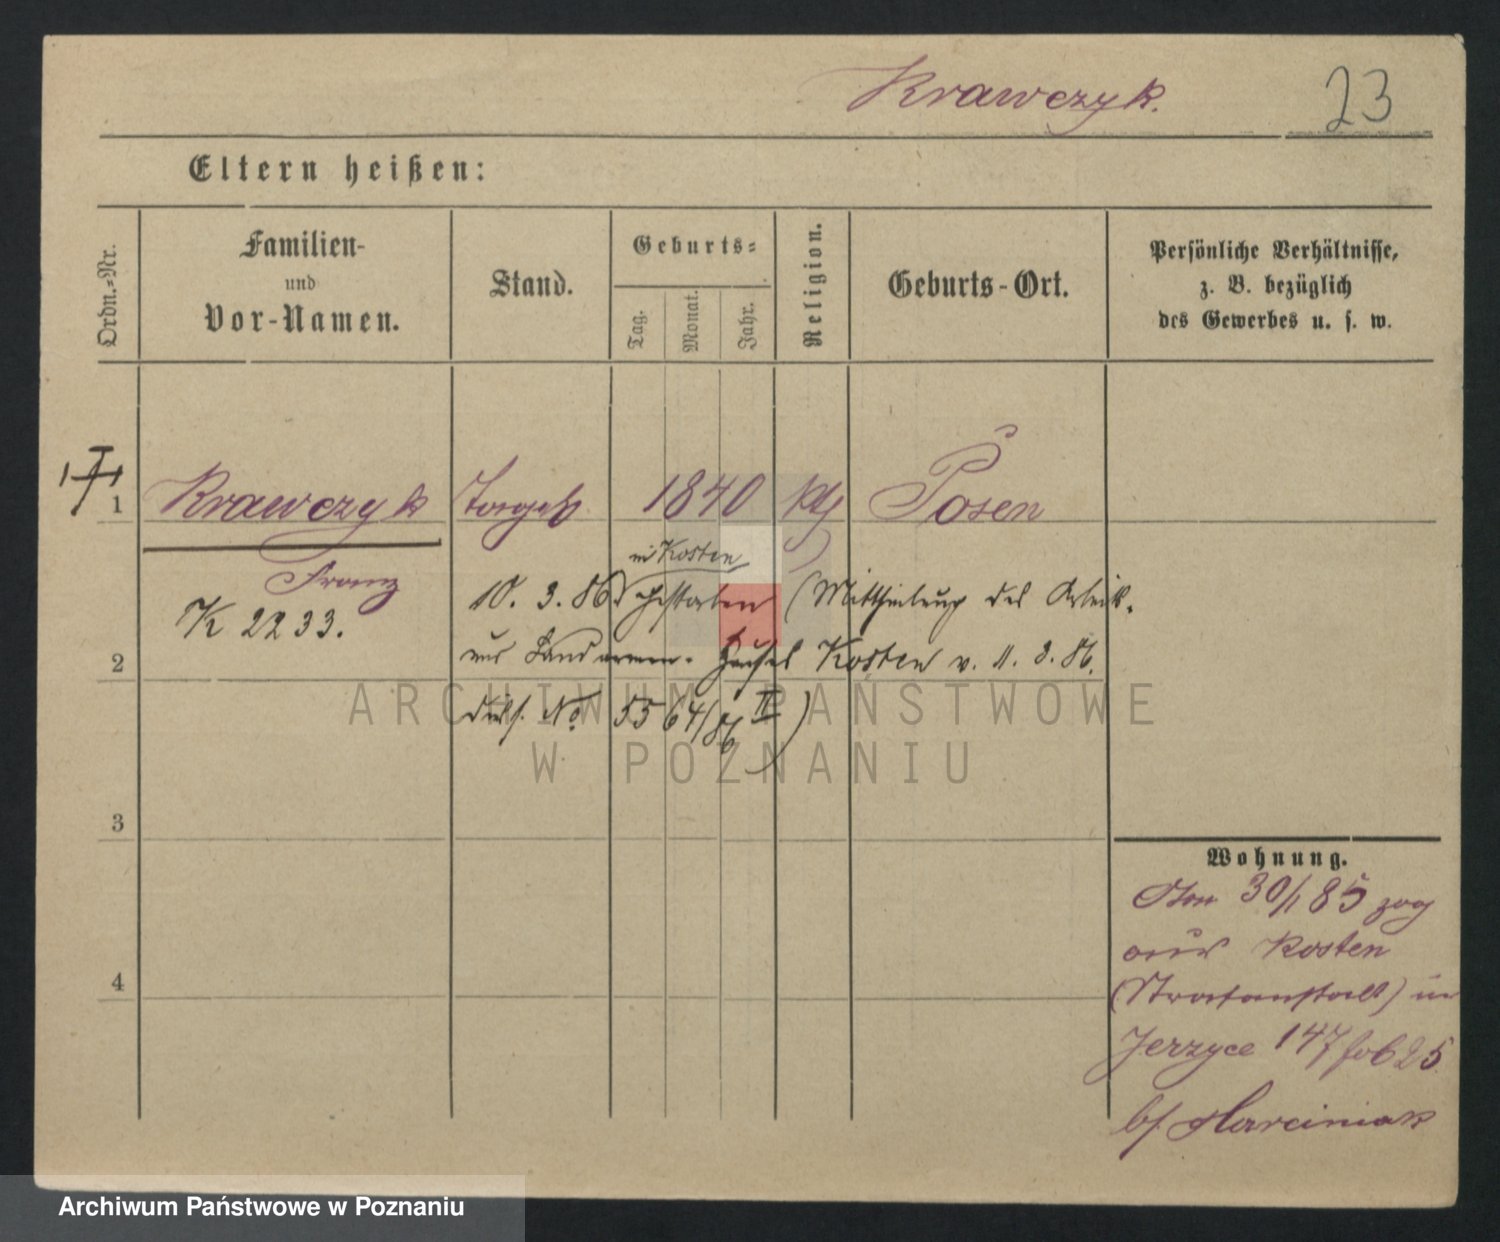 Krawczyk. 23
Eltern heißen:
Ordn.-Nr.
Familien-
und
Vor-Namen.
Stand.
Geburts-
Tag.
Monat.
Jahr.
Religion.
Geburts-Ort.
Persönliche Verhältnisse,
z. B. bezüglich
des Gewerbes u. s. w.
1 Krawczyk 1840 kth Posen
Franz
in Kosten
10. 3. 86 gestorben (Mittheilung des Arbeits-
K 2233.
2 und Landarmen-Hauses Kosten v. 11. 3. 86.
No 5564/86 II)
ARCHIWUM PAŃSTWOWE
W POZNANIU
3
Wohnung.
30/1 85 zog
aus Kosten
4 (Strafanstalt) in
Jerzyce 147
b/. Marciniak
Archiwum Państwowe w Poznaniu